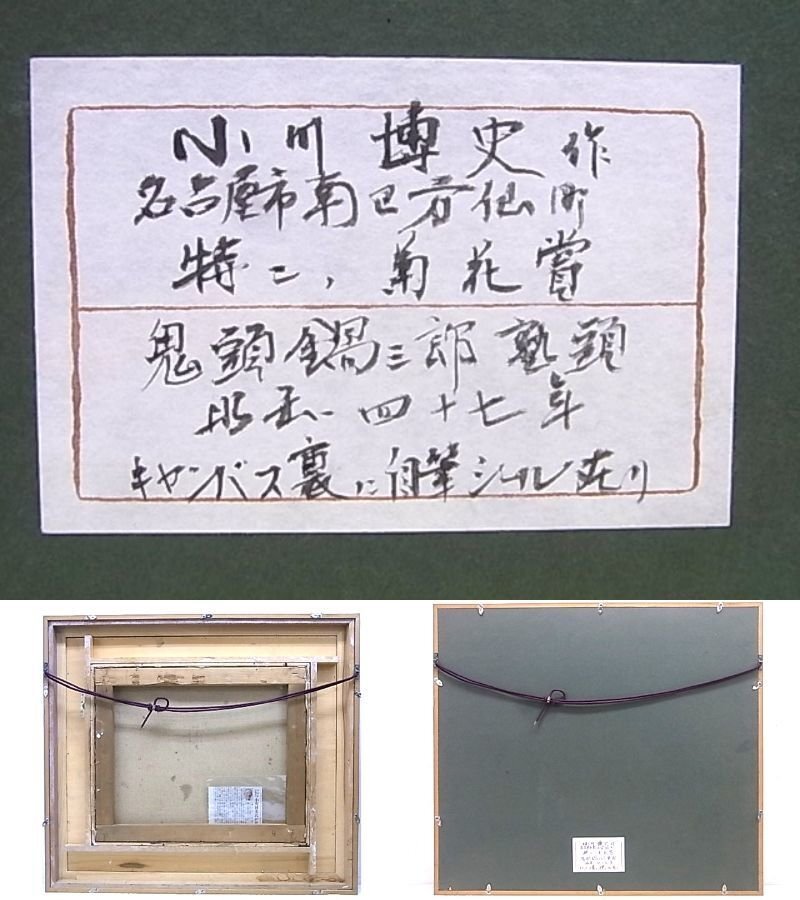 小川博史作
名古屋市南区方仙町
特二、菊花賞
鬼頭鍋三郎塾頭
昭和四十七年
キャンバス裏に自筆シール在り